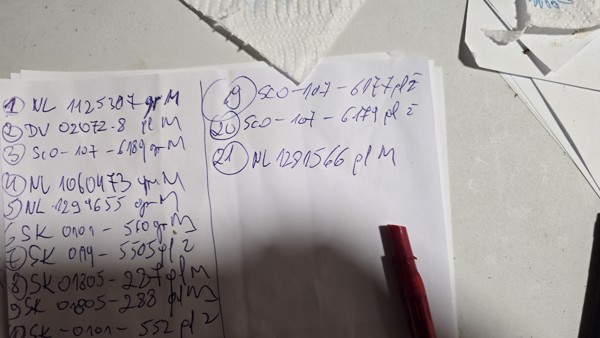 1 NL 1125307 gr M
2 DV 02072-8 pl M
3 SCO-107-6189 gr M
4 NL 1060473 gr M
5 NL 1294655 gr M
SK 0101-560 gr M
7 SK 0114-5505 pl ž
8 SK 01805-287 pl M
9 SK 01805-288 pl M
SK-0101-552 pl ž
19 SCO-107-6177 pl ž
20 SCO-107-6179 pl ž
21 NL 1291566 pl M